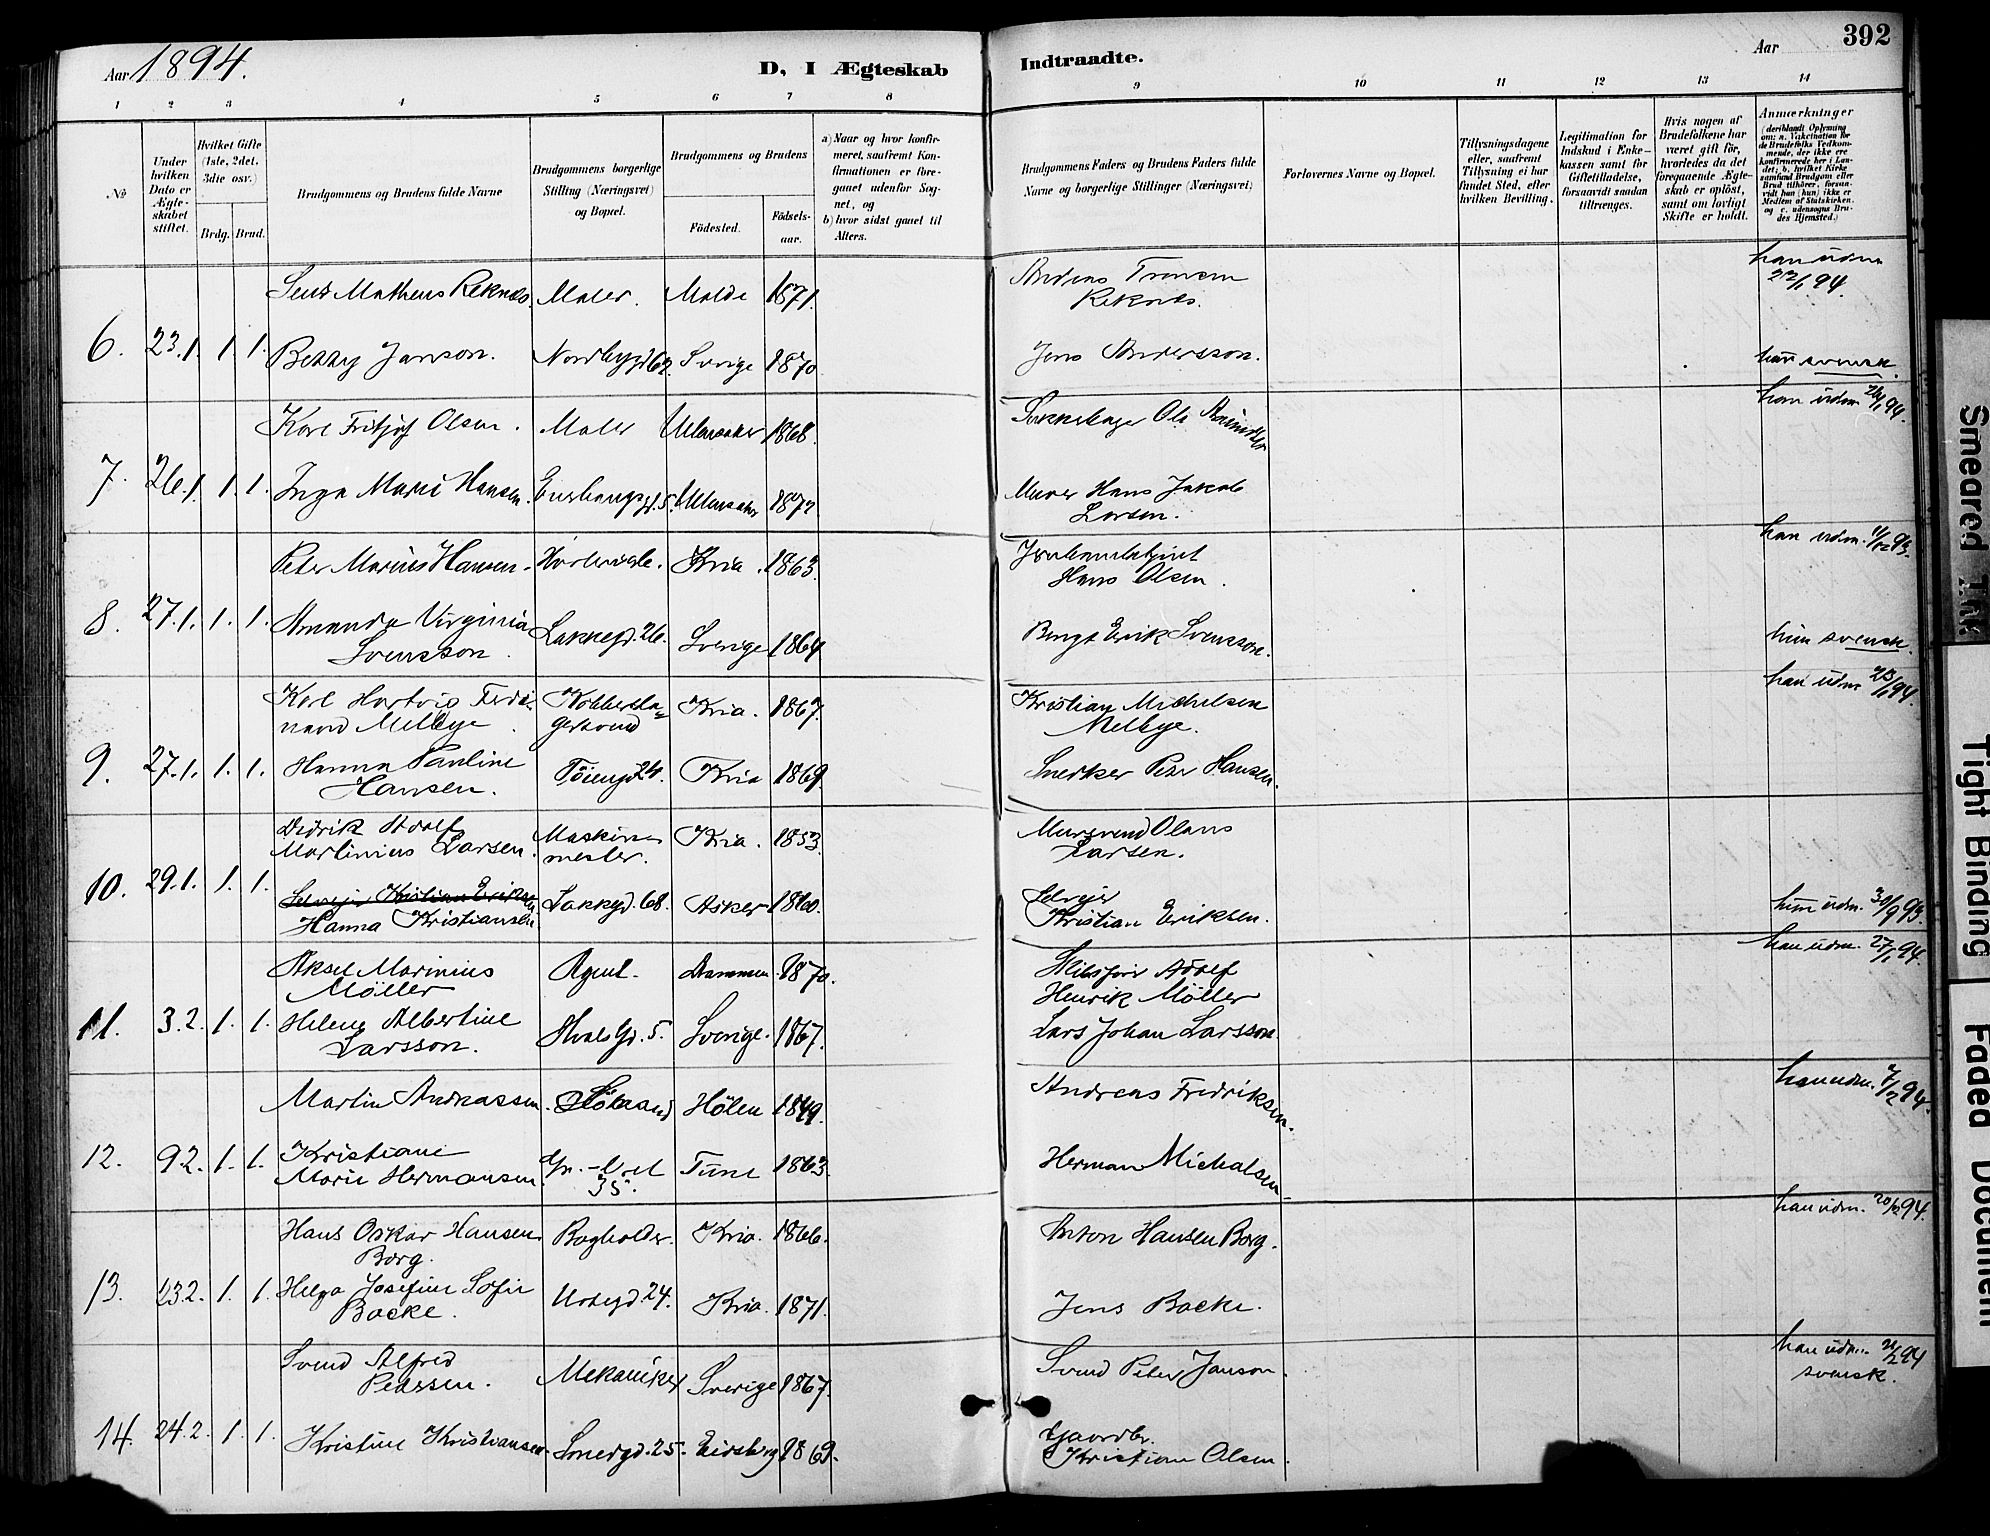 Aar 1894.
D, I Ægteskab
Indtraadte.
Aar
392
1 2 3 4 5 6 7 8 9 10 11 12 13 14
№
Under hvilken Dato er Ægteskabet stiftet.
Hvilket Gifte (1ste, 2det, 3die osv.)
Brdg. Brud.
Brudgommens og Brudens fulde Navne
Brudgommens borgerlige Stilling (Næringsvei) og Bopæl.
Brudgommens og Brudens
Födested.
Födselsaar.
a) Naar og hvor konfirmeret, saafremt Konfirmationen er foregaaet udenfor Sognet, og
b) hvor sidst gaaet til Alters.
Brudgommens Faders og Brudens Faders fulde Navne og borgerlige Stillinger (Næringsvei)
Forlovernes Navne og Bopæl.
Tillysningsdagene eller, saafremt Tillysning ei har fundet Sted, efter hvilken Bevilling.
Legitimation for Indskud i Enkekassen samt for Giftetilladelse, forsaavidt saadan tiltrænges.
Hvis nogen af Brudefolkene har været gift för, hvorledes da det foregaaende Ægteskab er oplöst, samt om lovligt Skifte er holdt.
Anmærkninger
(deriblandt Oplysning om: a. Vakcination for de Brudefolks Vedkommende, der ikke ere konfirmerede her i Landet; b. hvilket Kirkesamfund Brudgom eller Brud tilhörer, forsaavidt han (hun) ikke er Medlem af Statskirken, og c. udensogns Brudes Hjemsted.)
Matheus Reknes. Maler. Molde 1871.
Reknes.
han udm 22/1 94.
6. 23.1. 1. 1. Betty Janson. Nordbygd 62. Sverige 1870. Jens Andersson.
svensk.
Karl Fritjof Olsen. Maler Ullensaker 1868. Ole
han udm 94.
7. 26.1. 1. 1. Inga Marie Hansen. 5. Ullensaker 1872 Murer Hans Jakob
Larsen.
Peter Marius Hansen. Kria. 1863.
Hans Olsen.
han udm. 11/12 93.
8. 27.1. 1. 1. Amanda Virginia
Svensson. Lakkegd. 26. Sverige 1864 Bengt Erik Svensson.
hun svensk.
Karl Hartvig Ferdinand Melbye. Kobberslagersvend Kria. 1867. Kristian Michelsen
Melbye.
han udm 23/1 94.
9. 27.1. 1. 1. Hanna Pauline
Hansen. Töiengd 24. Kria 1869. Snedker Peter Hansen.
Didrik Adolf
Martinius Larsen. Maskinmester. Kria. 1853. Mursvend Olaus
Larsen.
10. 29.1. 1. 1. Selveier Kristian Eriksen
Hanna Kristiansen Lakkegd. 68. Asker 1860. Selveier
Kristian Eriksen.
hun udm. 30/9 93.
Aksel Marinius
Möller Agent. Drammen 1870. Adolf
Henrik Möller
han udm. 27/1 94.
11. 3.2. 1. 1. Helene Albertine
Larsson. 5. Sverige. 1867. Lars Johan Larsson.
Martin Andreassen. Hölen 1849. Andreas Fredriksen.
han udm. 7/2 94.
12. 9.2. 1. 1. Kristiane
Marie Hermansen. 35. Tune 1863. Herman Michalsen.
Hans Oskar Hansen
Borg. Bogholder. Kria. 1866. Anton Hansen Borg.
han udm. 20/2 94.
13. 23.2. 1. 1. Helga Josefine Sofie
Backe. Urtegd. 24. Kria. 1871. Jens Backe.
Svend Alfred
Pedersen. Mekaniker Sverige 1867. Svend Peter Janson.
han udm. 21/2 94
svensk.
14. 24.2. 1. 1. Kristine Kristiansen. Smedgd. 25. Eidsberg 1869. Gaardbr.
Kristian Olsen.
Smeared Ink
Tight Binding
Faded Document